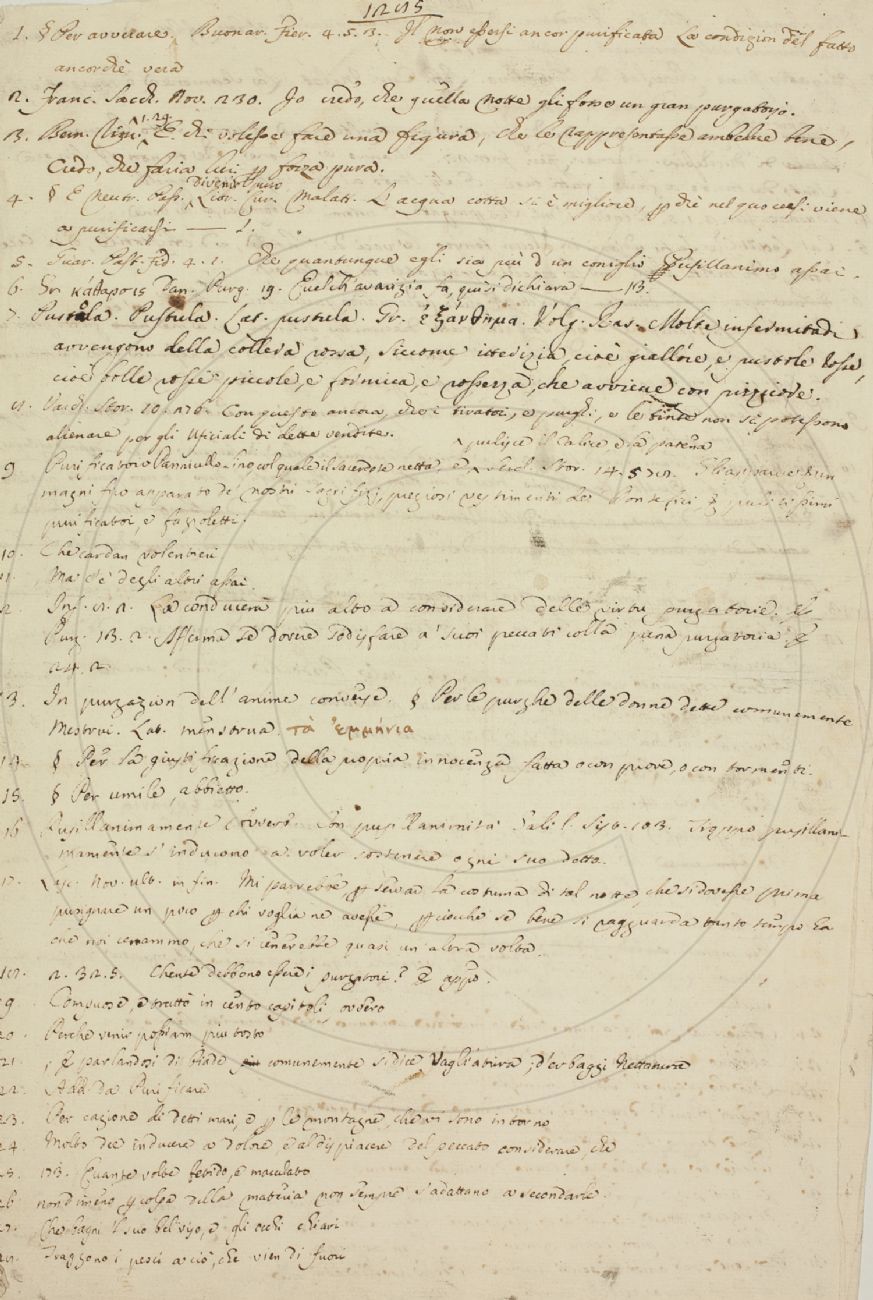 1. § Per avverare. Buonar. Fier. 4. 5. 3. Il non essersi ancor purificata La condizion del fatto
ancorchè vera
2. Franc. Sacch. Nov. 230. Io credo, che quella notte gli fosse un gran purgatorio.
3. Bern. 1. 24. E chi volesse fare una figura, che le rappresentasse ambedue bene,
Credo, che faria lui p forza pura.
4. § E Neutr. Pass. Divenir puro Libr. Cur. Malatt. L'acqua cotta si è migliore, p che nel quocersi viene
a purificarsi —
5. Guar. Past. fid. 4. 2. Che quantunque egli sia più d'un coniglio Pusillanimo assai.
6. Gr. κάθαρσις Dan. Purg. 19. Quel ch'avarizia fa, qui si dichiara — 13.
7. Pustola. Pustula. Lat. pustula. Gr. ἐξάνθημα. Volg. Ras. Molte infermitadi
avvengono della collera rossa, siccome itterizia, cioè giallore, e pustole rosse,
cioè bolle rosse piccole, e formica, e rossezza, che avviene con pizzicore.
Varch. Stor. 10. Con questo ancora, che i tiratoi, e purghi, e le tinte non si potessono
alienare per gli Uficiali di dette vendite.
pulisce il Calice, e la patena
9 Purificatoio Pannicello lino col quale il Sacerdote netta, e Stor. 14. 5
magnifico apparato de' nostri sagrifizj, preziosi vestimenti de' Pontefici & pulitissimi
purificatoi, e fazzoletti.
10. Che cardan volentieri
Ma c'è degli altri assai
La conducerà più alto a considerare delle virtù purgatorie. &
Purg. 13. 2. Afferma sè dovere sodisfare a' suoi peccati colla pena purgatoria &
24. 2.
3. In purgazion dell'anime converse. § Per le purghe delle donne dette comunemente
Mestrui. Lat. menstrua. τὰ ἐμμήνια
14. § Per la giustificazione della propria innocenza fatta o con prove, o con tormenti.
15. § Per umile, abbietto.
16 Pusillanimamente Avverb. Con pusillanimità Galil. Troppo pusillani-
mamente s'inducono a voler sostenere ogni suo detto.
Lasc. Nov. ult. in fin. Mi parrebbe p servar la costuma di tal notte, che si dovesse prima
pusignare un poco p chi voglia ne avesse, p ciocchè se bene si ragguarda tanto tempo ha
che noi cenammo, che si cenerebbe quasi un'altra volta.
2. 325. Chente debbono essere i purgatori? & app.
9. Compuose, e trattò in cento capitoli ovvero
20. Perchè venir possiam più tosto
21. ; & parlandosi di Biade comunemente si dice Vagliatura, d'erbaggi Nettatura
22. Add. da Purificare
23. Per cagione di detti mari, e p le montagne, che vi sono intorno
24. Molto dee inducere a dolore, e al dispiacere del peccato considerare, che
Quante volte fetido, e maculato
nondimeno p colpa della materia non sempre s'adattano a secondarle.
Che bagni 'l suo bel viso, e gli occhi chiari
Traggono i pesci a ciò, che vien di fuori